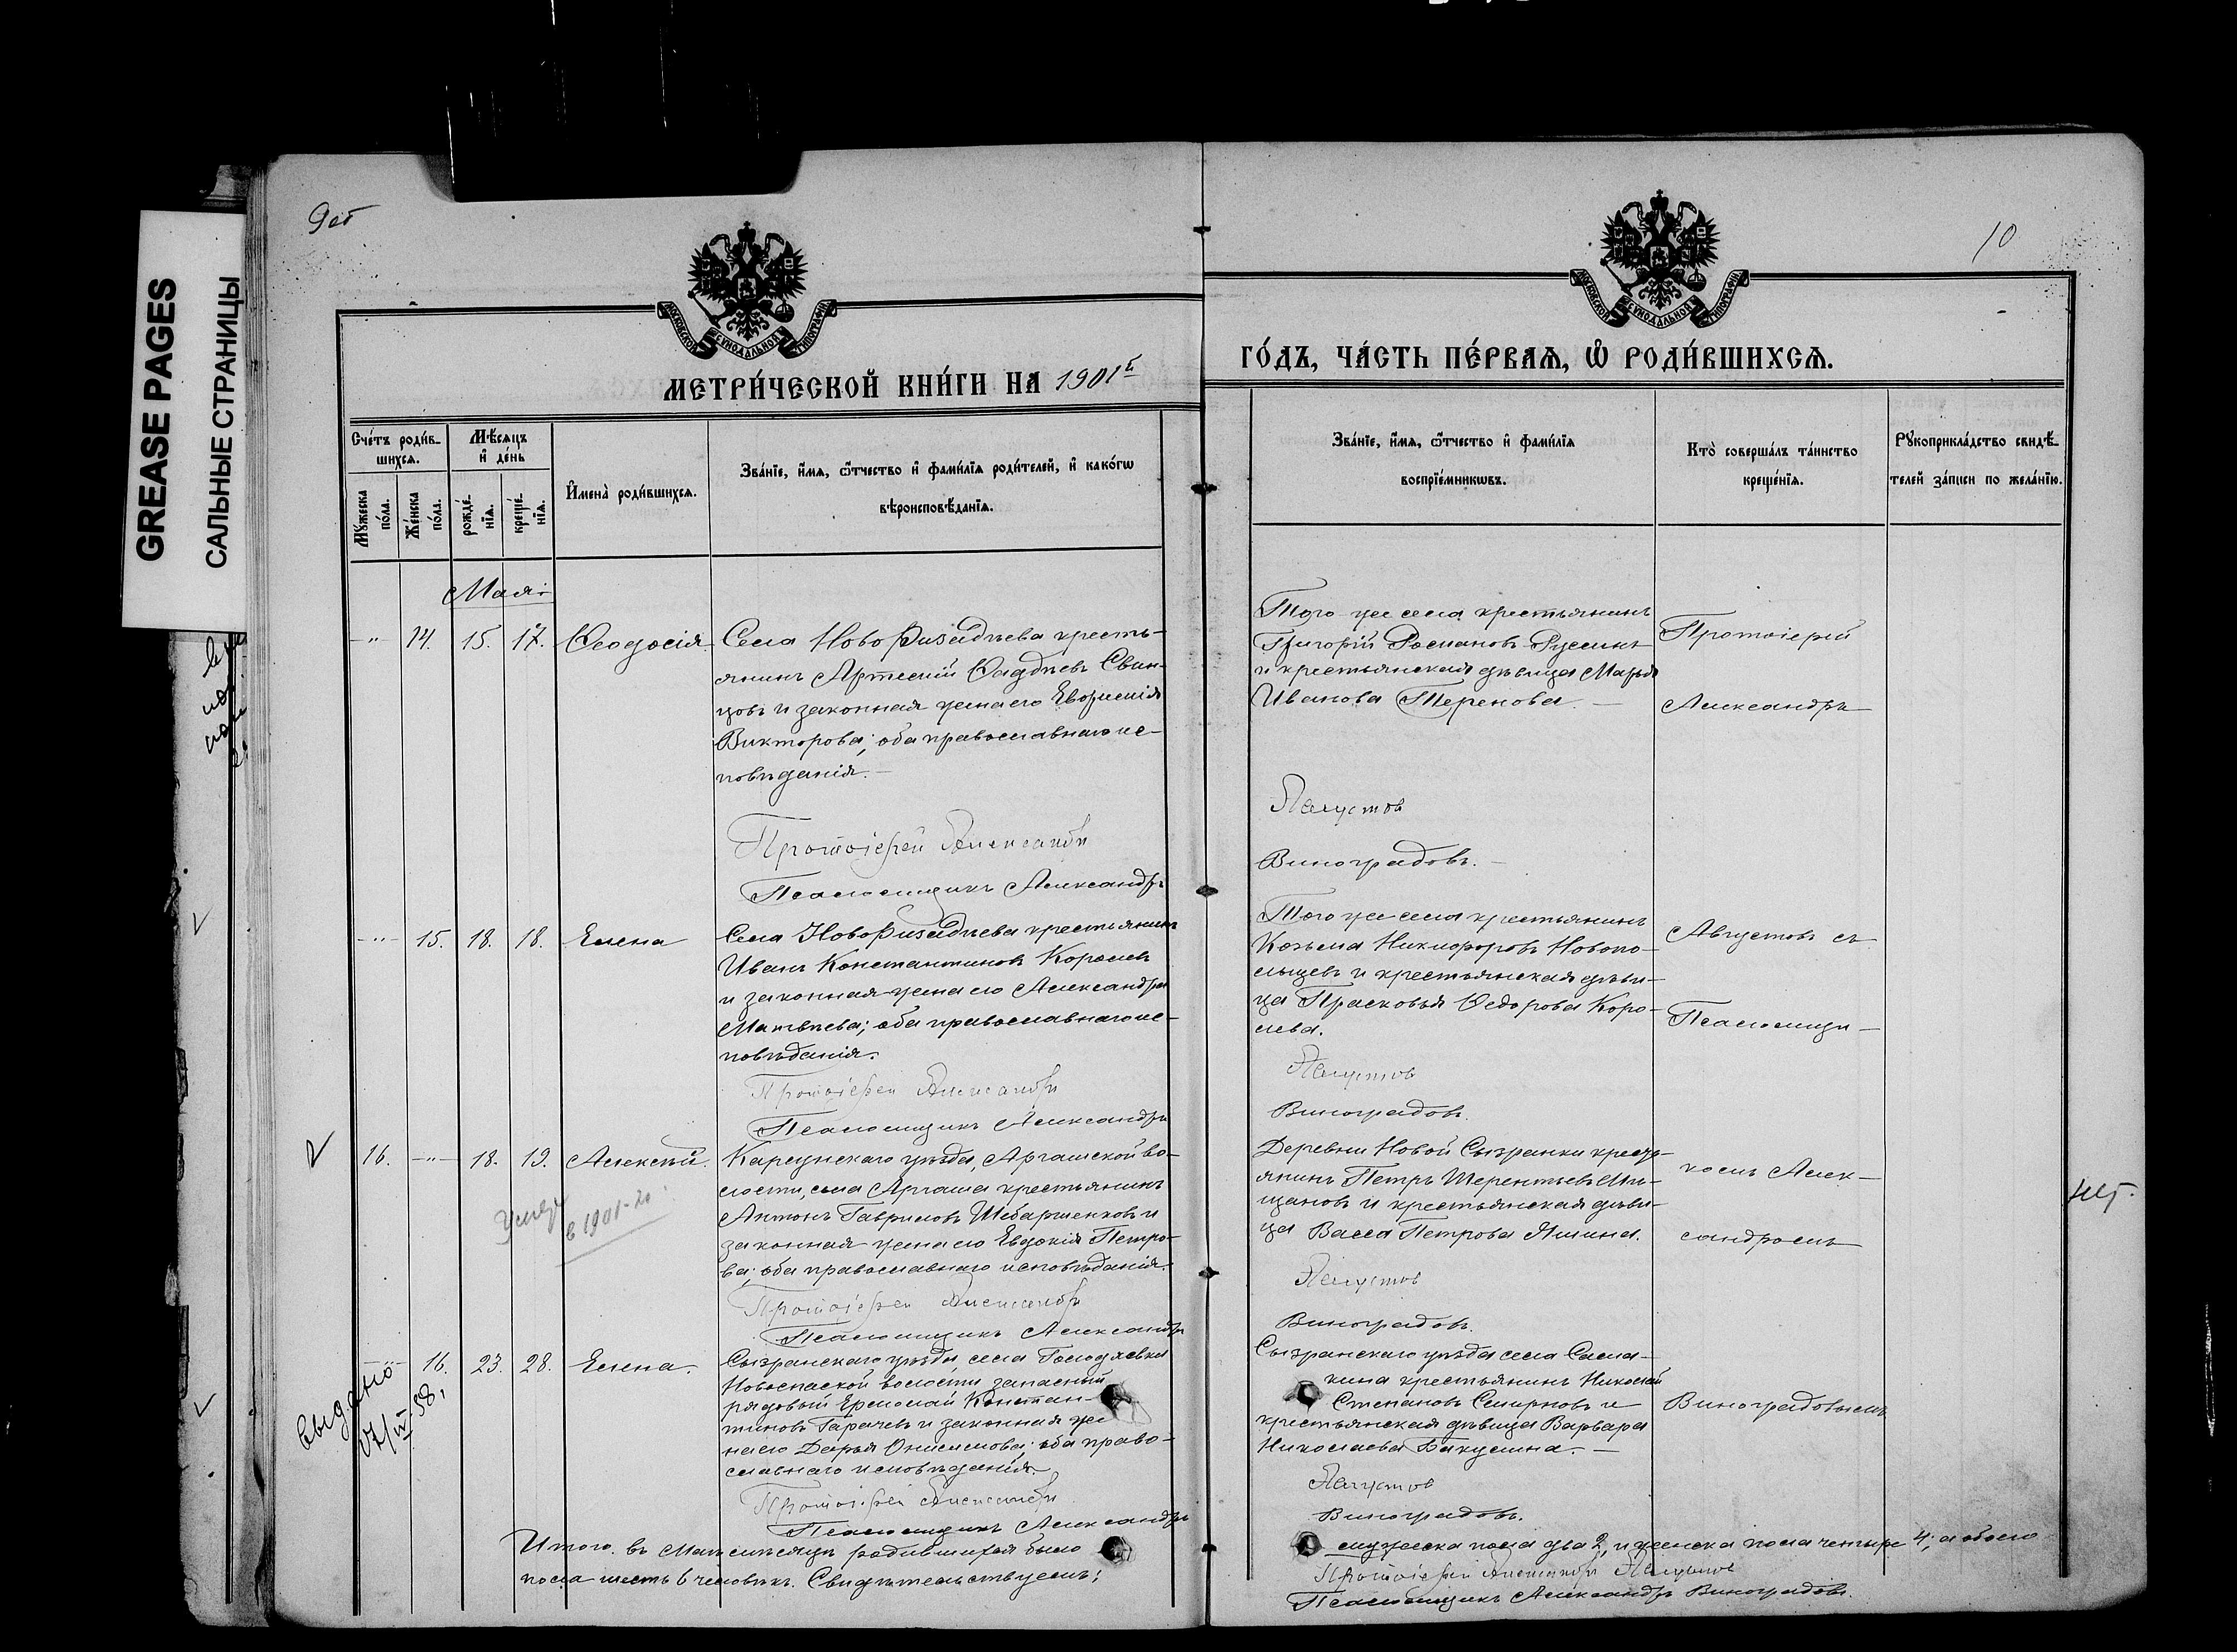 GREASE PAGES
САЛЬНЫЕ СТРАНИЦЫ
9об
10
МОСКОВСКОЙ СѴНОДАЛЬНОЙ ТИПОГРАФІИ
МОСКОВСКОЙ СѴНОДАЛЬНОЙ ТИПОГРАФІИ
МЕТРИ́ЧЕСКОЙ КНИ́ГИ НА 1901й
ГО́ДЪ, ЧА́СТЬ ПЕ́РВАѦ, Ѡ РОДИ́ВШИХСѦ.
Сче́тъ роди́в-
шихсѧ.
Мѣ́сѧцъ
и҆ де́нь
Мꙋ́жеска
по́ла.
Же́нска
по́ла.
рожде́-
нїѧ.
креще́-
нїѧ.
И҆мена̀ роди́вшихсѧ.
Зва́нїе, и҆́мѧ, ѻ҆́тчество и҆ фами́лїѧ роди́телей, и҆ како́гѡ
вѣроисповѣ́данїѧ.
Зва́нїе, и҆́мѧ, ѻ҆́тчество и҆ фами́лїѧ
воспрїе́мникѡвъ.
Кто̀ соверша́лъ та́инство
креще́нїѧ.
Рꙋкоприкла́дство свидѣ́-
телей за́писи по жела́нїю.
Мая
-"- 14. 15. 17. Ѳеодосія.
Села Новоризадѣева кресть-
янинъ Артемій Ѳаддѣевъ Свин-
цовъ и законная жена его Евфимія
Викторова; оба православнаго ис-
повѣданія.-
Протоіерей Александръ
Псаломщикъ Александръ
Того же села крестьянинъ
Григорій Романовъ Русинъ
и крестьянская дѣвица Марья
Иванова Теренова.-
Августовъ
Виноградовъ.-
Протоіерей
Александръ
-"- 15. 18. 18. Елена
Села Новоризадѣева крестьянинъ
Иванъ Константиновъ Королевъ
и законная жена его Александра
Матвѣева; оба православнаго ис-
повѣданія.
Протоіерей Александръ
Псаломщикъ Александръ
Того же села крестьянинъ
Козьма Никифоровъ Новопо-
льцевъ и крестьянская дѣви-
ца Прасковья Ѳедорова Коро-
лева.
Августовъ
Виноградовъ.
Августовъ съ
Псаломщи-
16. -"- 18. 19. Алексѣй.
умеръ
в 1901 г.
Карсунскаго уѣзда, Аргашской во-
лости, села Аргаша крестьянинъ
Антонъ Гавриловъ Шебаршенковъ и
законная жена его Евдокія Петро-
ва; оба православнаго исповѣданія.
Протоіерей Александръ
Псаломщикъ Александръ
Деревни Новой Сызранки кресть-
янинъ Петръ Терентьевъ Ми-
щановъ и крестьянская дѣви-
ца Васса Петрова Яшина.
Августовъ
Виноградовъ.
комъ Алек-
сандромъ
-"- 16. 23. 28. Елена.
Выдано
Сызранскаго уѣзда, села Голодяевки
Новоспаской волости запасный
рядовый Ермолай Констан-
тиновъ Горачевъ и законная же-
на его Дарья Онисимова; оба право-
славнаго исповѣданія.
Протоіерей Александръ
Псаломщикъ Александръ
Сызранскаго уѣзда села Сама-
кина крестьянинъ Николай
Степановъ Смирновъ и
крестьянская дѣвица Варвара
Николаева Бакулина.-
Августовъ
Виноградовъ.
Виноградовымъ
Итого въ Маѣ мѣсяцѣ родившихся было
мужеска пола два 2, и женска пола четыре 4; а обоего
пола шесть 6 человѣкъ. Свидѣтельствуемъ:
Протоіерей Александръ Августовъ
Псаломщикъ Александръ Виноградовъ.